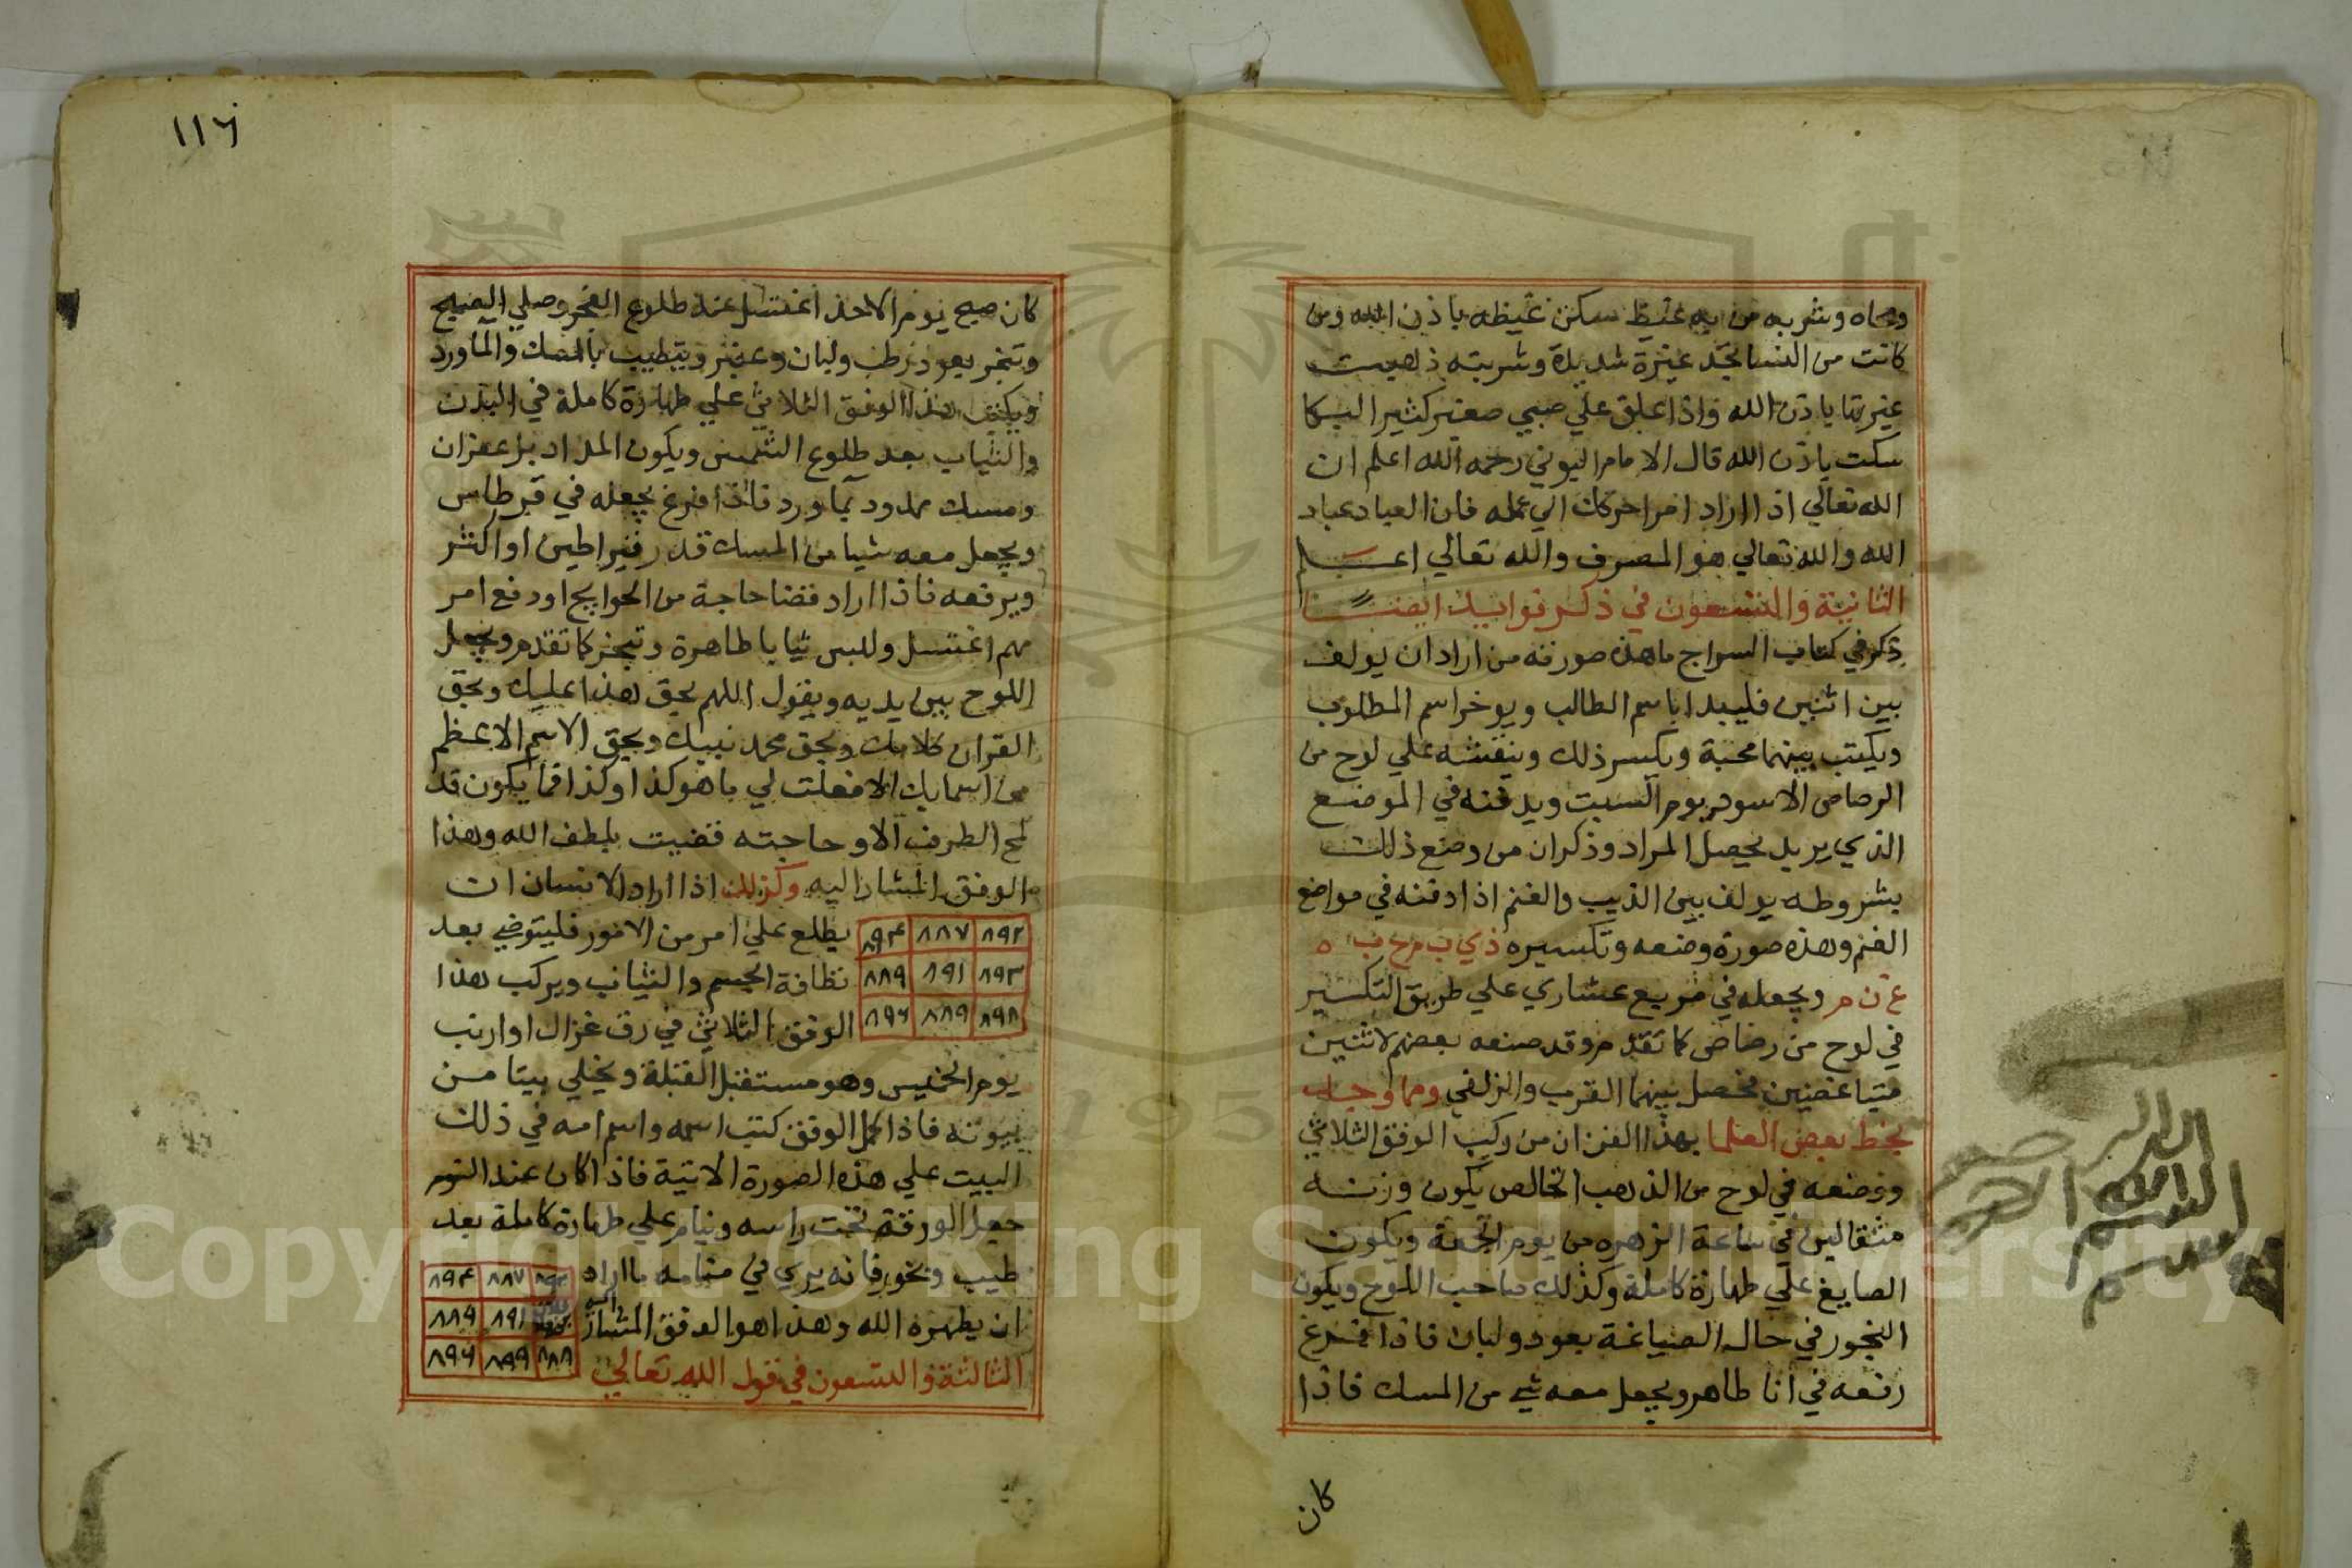 ومحاه وشربه من به غيظ سكن غيظه باذن الله ومن
كانت من النسا تجد غيرة شديدة وشربته ذهبت
غيرتها باذن الله واذا علق علي صبي صغير كثير البكا
سكت باذن الله قال الامام البوني رحمه الله اعلم ان
الله تعالي اذا اراد امرا حركك الي عمله فان العباد عباد
الله والله تعالي هو المصرف والله تعالي اعلم
الثانية والتسعون في ذكر فوايد ايضا
ذكر في كتاب السراج ما هذه صورته من اراد ان يولف
بين اثنين فليبدا باسم الطالب ويوخر اسم المطلوب
ويكتب بينهما محبة ويكسر ذلك وينقشه علي لوح من
الرصاص الاسود يوم السبت ويدفنه في الموضع
الذي يريد يحصل المراد وذكر ان من وضع ذلك
بشروطه يولف بين الذيب والغنم اذا دفنه في مواضع
الغنم وهذه صورة وضعه وتكسيره ذ ي ب م ح ب ه
غ ن م ويجعله في مربع عشاري علي طريق التكسير
في لوح من رصاص كما تقدم وقد صنعه بعضهم لاثنين
متباغضين فحصل بينهما القرب والزلفي ومما وجد
بخط بعض العلما بهذا الفن ان من ركب الوفق الثلاثي
ووضعه في لوح من الذهب الخالص يكون وزنه
مثقالين في ساعة الزهره من يوم الجمعة ويكون
الصايغ علي طهارة كاملة وكذلك صاحب اللوح ويكون
البخور في حال الصياغة بعود ولبان فاذا فرغ
رفعه في انا طاهر ويجعل معه شي من المسك فاذا
كان
١١٦
كان صبح يوم الاحد اغتسل عند طلوع الفجر وصلي الصبح
وتبخر بعود رطب ولبان وعنبر ويتطيب بالمسك والماورد
ويكتب هذا الوفق الثلاثي علي طهارة كاملة في البدن
والثياب بعد طلوع الشمس ويكون المداد بزعفران
ومسك ممدود بماورد فاذا فرغ يجعله في قرطاس
ويجعل معه شيا من المسك قدر قيراطين او اكثر
ويرفعه فاذا اراد قضا حاجة من الحوايج او دفع امر
مهم اغتسل ولبس ثيابا طاهرة وتبخر كما تقدم ويجعل
اللوح بين يديه ويقول اللهم بحق هذا عليك وبحق
القران كلامك وبحق محمد نبيك وبحق الاسم الاعظم
من اسمايك الا فعلت لي ما هو كذا وكذا فما يكون قد
لمح الطرف الا و حاجته قضيت بلطف الله وهذا
الوفق المشار اليه وكذلك اذا اراد الانسان ان
يطلع علي امر من الامور فليتوضي بعد
نظافة الجسم والثياب ويركب هذا
الوفق الثلاثي في رق غزال او ارنب
٨٩٢ ٨٨٧ ٨٩٤
٨٩٣ ٨٩١ ٨٨٩
٨٩٨ ٨٨٩ ٨٩٦
يوم الخميس وهو مستقبل القبلة ويخلي بيتا من
بيوته فاذا كمل الوفق كتب اسمه واسم امه في ذلك
البيت علي هذه الصورة الاتية فاذا كان عند النوم
جعل الورقة تحت راسه وينام علي طهارة كاملة بعد
طيب وبخور فانه يري في منامه ما اراد
ان يظهره الله وهذا هو الوفق المشار اليه
٨٩٢ ٨٨٧ ٨٩٤
٨٩١ ٨٨٩
٨٨٨ ٨٩٩ ٨٩٦
الثالثة والتسعون في قول الله تعالي
Copyright © King Saud University
195